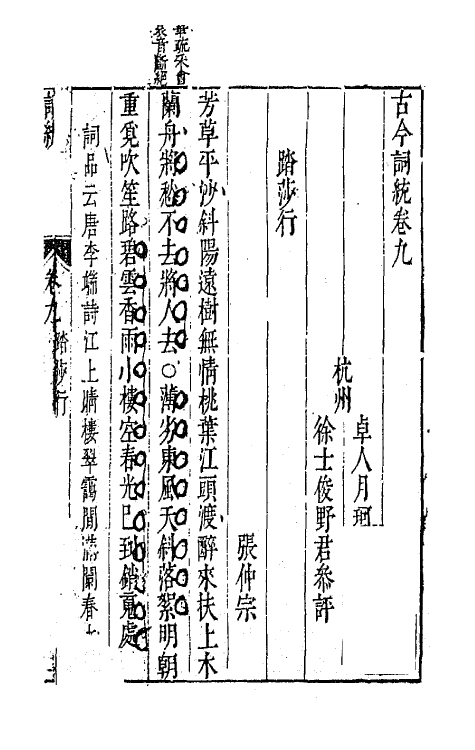 古今詞統卷九
杭州
卓人月珂月
徐士俊野君參評
踏莎行
張仲宗
芳草平沙斜陽遠樹無情桃葉江頭渡醉來扶上木
蘭舟將愁不去將人去○薄劣東風夭斜落絮明朝
重覓吹笙路碧雲香雨小樓空春光已到銷魂處
詞品云唐李端詩江上晴樓翠靄間滿闌春
詞統
卷九
踏莎行